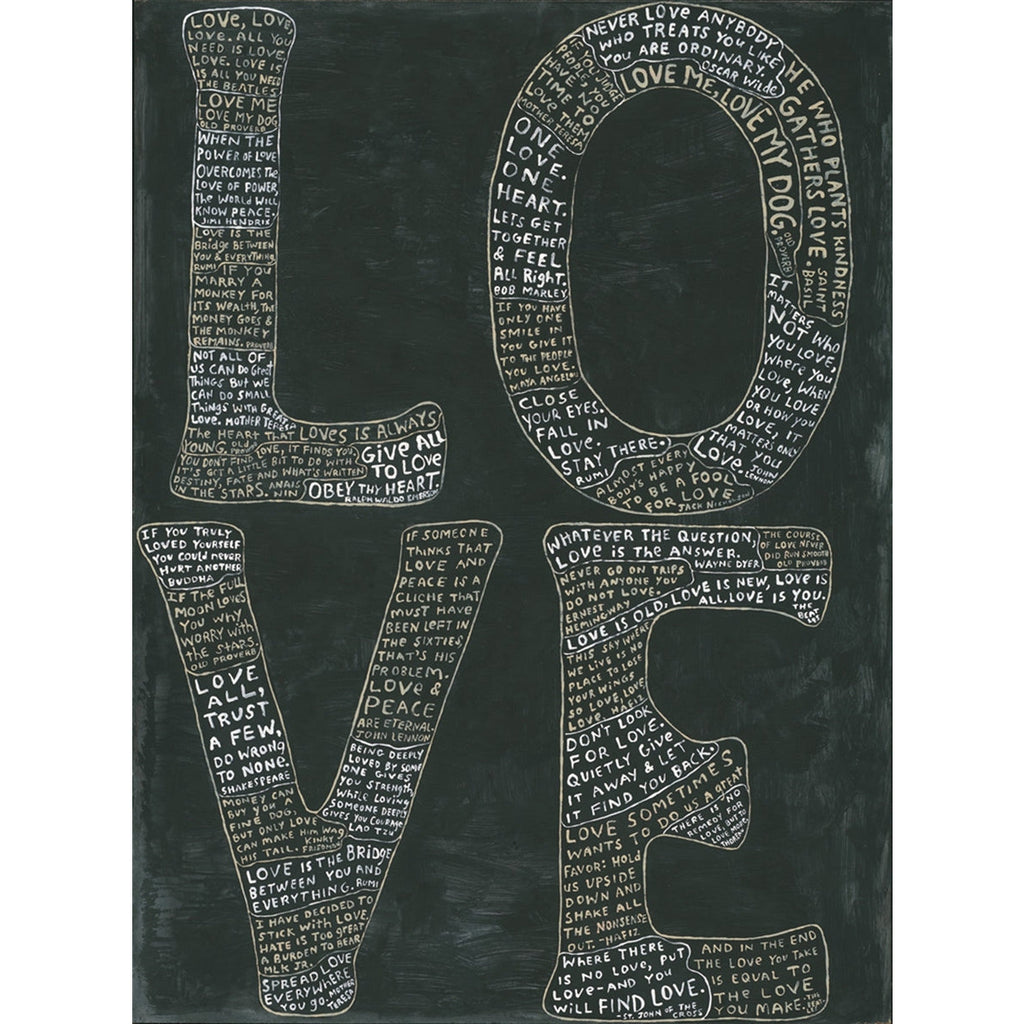 LOVE, LOVE,
LOVE. ALL YOU
NEED IS LOVE
LOVE. LOVE IS
IS ALL YOU NEED
THE BEATLES
LOVE ME
LOVE MY DOG
OLD PROVERB
WHEN THE
POWER OF LOVE
OVERCOMES THE
LOVE OF POWER,
THE WORLD WILL
KNOW PEACE.
JIMI HENDRIX
LOVE IS THE
BRIDGE BETWEEN
YOU & EVERYTHING
RUMI
IF YOU
MARRY A
MONKEY FOR
ITS WEALTH, THE
MONEY GOES &
THE MONKEY
REMAINS. PROVERB
NOT ALL OF
US CAN DO GREAT
THINGS BUT WE
CAN DO SMALL
THINGS WITH GREAT
LOVE. MOTHER TERESA
THE HEART THAT LOVES IS ALWAYS
YOUNG. OLD PROVERB
YOU DON'T FIND LOVE, IT FINDS YOU.
IT'S GOT A LITTLE BIT TO DO WITH
DESTINY, FATE AND WHAT'S WRITTEN
IN THE STARS. ANAIS
NIN
GIVE ALL
TO LOVE
OBEY THY HEART.
RALPH WALDO EMERSON
IF YOU JUDGE
PEOPLE, YOU
HAVE NO
TIME TO
LOVE THEM
MOTHER TERESA
NEVER LOVE ANYBODY
WHO TREATS YOU LIKE
YOU ARE ORDINARY.
OSCAR WILDE
HE WHO PLANTS KINDNESS
GATHERS LOVE. SAINT
BASIL
LOVE ME, LOVE MY DOG.
OLD
PROVERB
ONE
LOVE.
ONE
HEART.
LETS GET
TOGETHER
& FEEL
ALL RIGHT.
BOB MARLEY
IF YOU HAVE
ONLY ONE
SMILE IN
YOU GIVE IT
TO THE PEOPLE
YOU LOVE.
MAYA ANGELOU
CLOSE
YOUR EYES.
FALL IN
LOVE.
STAY THERE.
RUMI
IT
MATTERS
NOT WHO
YOU LOVE,
WHERE YOU
LOVE, WHEN
YOU LOVE
OR HOW YOU
LOVE, IT
MATTERS ONLY
THAT YOU
LOVE. JOHN
LENNON
ALMOST EVERY
BODY'S HAPPY
TO BE A FOOL
FOR LOVE
JACK NICHOLSON
IF YOU TRULY
LOVED YOURSELF
YOU COULD NEVER
HURT ANOTHER
BUDDHA
IF THE FULL
MOON LOVES
YOU WHY
WORRY WITH
THE STARS.
OLD PROVERB
LOVE
ALL,
TRUST
A FEW,
DO WRONG
TO NONE.
SHAKESPEARE
MONEY CAN
BUY YOU A
FINE DOG,
BUT ONLY LOVE
CAN MAKE HIM WAG
HIS TAIL. KINKY
FRIEDMAN
LOVE IS THE BRIDGE
BETWEEN YOU AND
EVERYTHING. RUMI
I HAVE DECIDED TO
STICK WITH LOVE
HATE IS TOO GREAT
A BURDEN TO BEAR
MLK JR.
SPREAD LOVE
EVERYWHERE
YOU GO- MOTHER
TERESA
IF SOMEONE
THINKS THAT
LOVE AND
PEACE IS A
CLICHE THAT
MUST HAVE
BEEN LEFT IN
THE SIXTIES,
THAT'S HIS
PROBLEM.
LOVE &
PEACE
ARE ETERNAL.
JOHN LENNON
BEING DEEPLY
LOVED BY SOME
ONE GIVES
YOU STRENGTH,
WHILE LOVING
SOMEONE DEEPLY
GIVES YOU COURAGE
LAO TZU
WHATEVER THE QUESTION,
LOVE IS THE ANSWER.
WAYNE DYER
THE COURSE
OF LOVE NEVER
DID RUN SMOOTH
OLD PROVERB
NEVER GO ON TRIPS
WITH ANYONE YOU
DO NOT LOVE.
ERNEST
HEMINGWAY
LOVE IS OLD, LOVE IS NEW, LOVE IS
ALL. LOVE IS YOU.
THE
BEATLES
THIS SKY WHERE
WE LIVE IS NO
PLACE TO LOSE
YOUR WINGS
SO LOVE, LOVE
LOVE. HAFIZ
DONT LOOK
FOR LOVE.
QUIETLY GIVE
IT AWAY & LET
IT FIND YOU BACK.
LOVE SOMETIMES
WANTS TO DO US A GREAT
FAVOR: HOLD
US UPSIDE
DOWN AND
SHAKE ALL
THE NONSENSE
OUT. -HAFIZ
THERE IS NO
REMEDY FOR
LOVE, BUT TO
LOVE MORE.
THOREAU
WHERE THERE
IS NO LOVE, PUT
LOVE-AND YOU
WILL FIND LOVE.
-ST. JOHN OF THE
CROSS
AND IN THE END
THE LOVE YOU TAKE
IS EQUAL TO
THE LOVE
YOU MAKE. THE
BEATLES